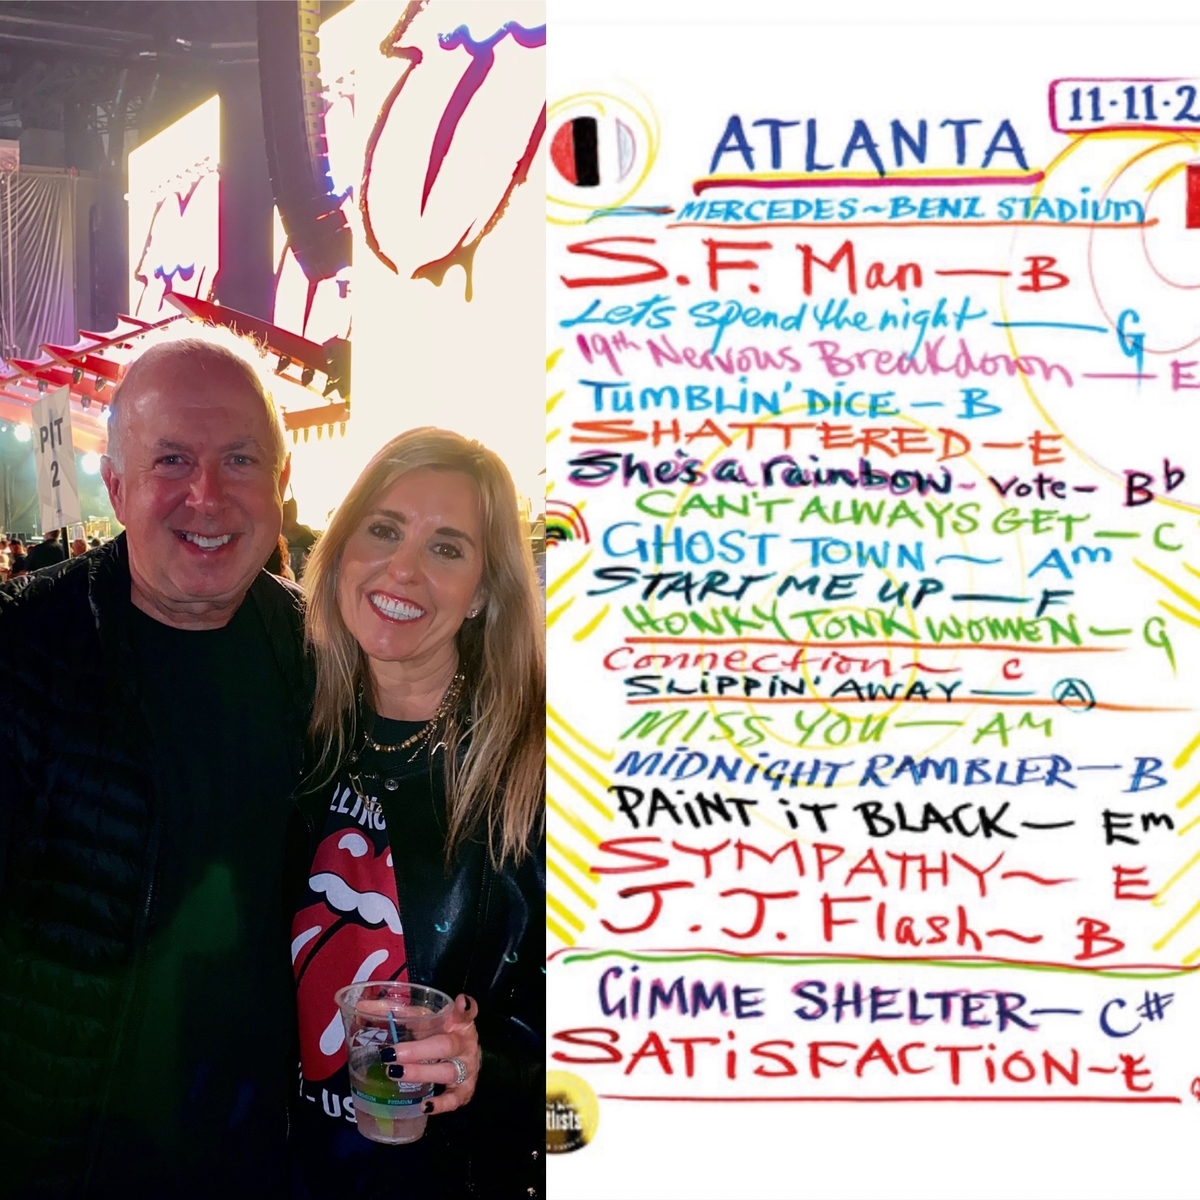 PIT
2
LLING
- US
PREMIUM
PREMIUM
11-11-2
ATLANTA
MERCEDES~BENZ STADIUM
S.F. Man — B
Lets spend the night — G
19th Nervous Breakdown — E
TUMBLIN' DICE — B
SHATTERED — E
She's a rainbow - vote - Bb
CAN'T ALWAYS GET — C
GHOST TOWN ~ Am
START ME UP — F
HONKY TONK WOMEN — G
Connection ~ C
SLIPPIN' AWAY — A
MISS YOU — AM
MIDNIGHT RAMBLER — B
PAINT iT BLACK — Em
SYMPATHY ~ E
J.J. Flash ~ B
GIMME SHELTER — C#
SATISFACTION ~ E
tlists